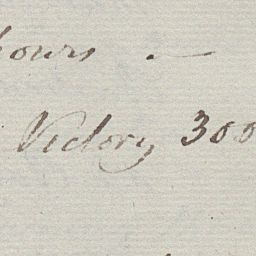 hours —
Victory 300